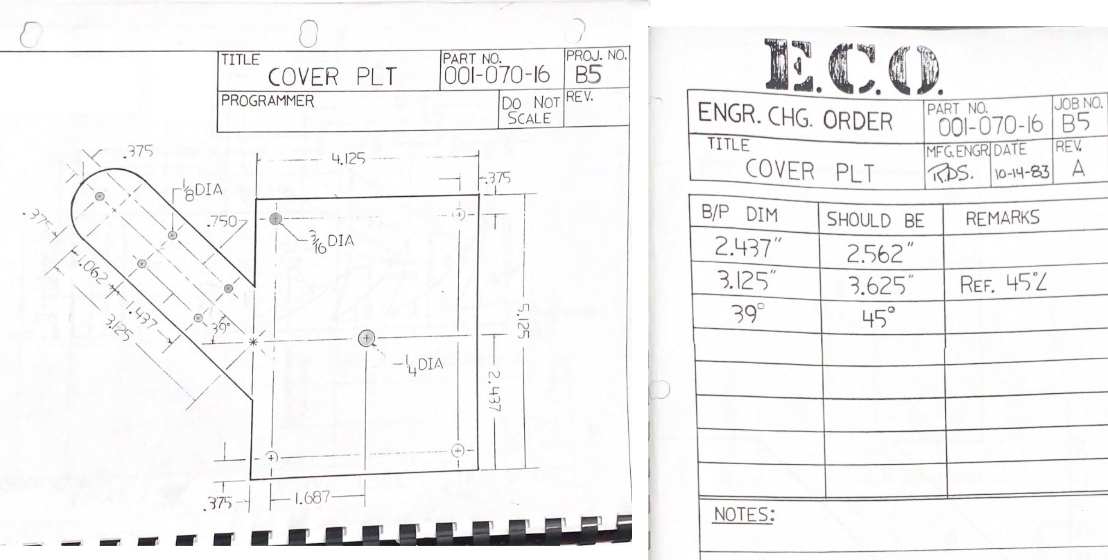 TITLE
COVER PLT
PART NO.
001-070-16
PROJ. NO.
B5
PROGRAMMER
DO NOT
SCALE
REV.
.375
4.125
.375
1/8 DIA
.750
3/16 DIA
.375
1.062
1.437
3.125
39°
5.125
1/4 DIA
2.437
.375
1.687
E.C.O.
ENGR. CHG. ORDER
PART NO.
001-070-16
JOB NO.
B5
TITLE
COVER PLT
MFG.ENGR.
RDS.
DATE
10-14-83
REV.
A
B/P DIM SHOULD BE REMARKS
2.437" 2.562"
3.125" 3.625" REF. 45°∠
39° 45°
NOTES: